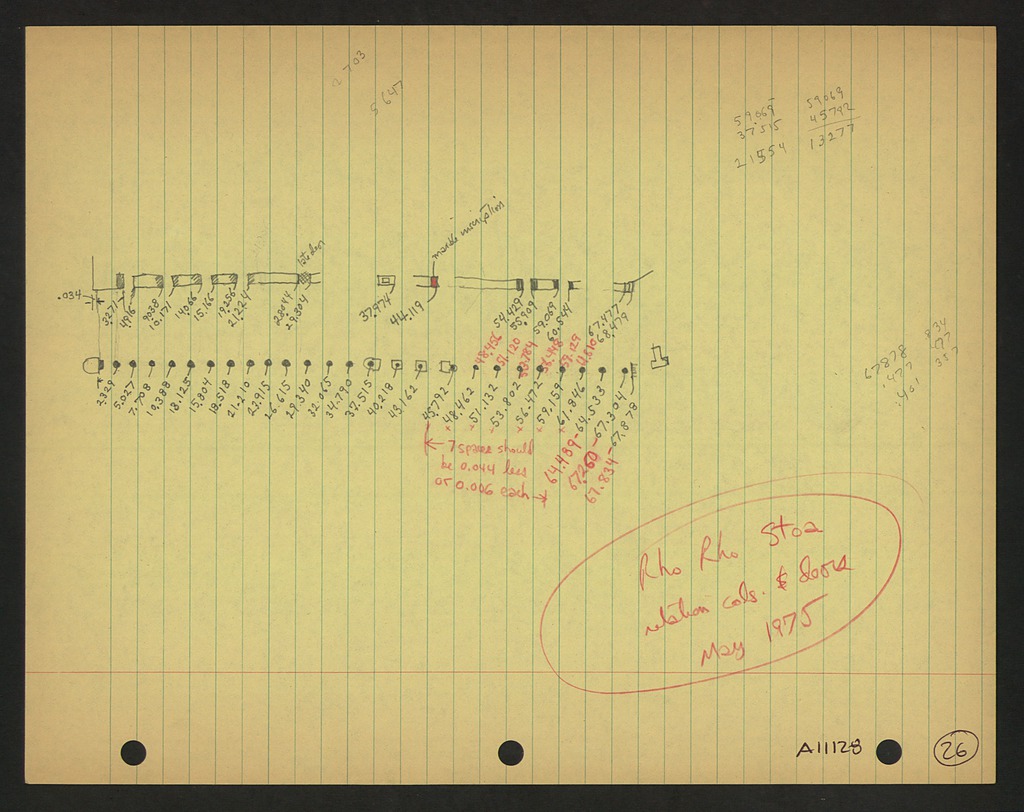 2703
5647
59.069
37.515
21554
59069
45792
13277
late door
marble inscription
.034
3.271
4.916
9.038
10.171
14.066
15.166
19.256
21.224
28.044
29.304
37.974
44.119
54.429
55.909
59.069
60.544
67.477
68.479
48.456
51.120
53.784
56.448
59.129
61.810
2.329
5.027
7.708
10.388
13.125
15.804
18.518
21.210
23.915
26.615
29.340
32.065
34.790
37.515
40.218
43.162
45.792
48.462
51.132
53.802
56.472
59.159
61.846
64.533
67.304
67.878
64.489
67.260
67.834
7 spaces should
be 0.044 less
or 0.006 each
67878
.477
.401
834
477
357
Rho Rho Stoa
relation cols. & doors
May 1975
A11128
26